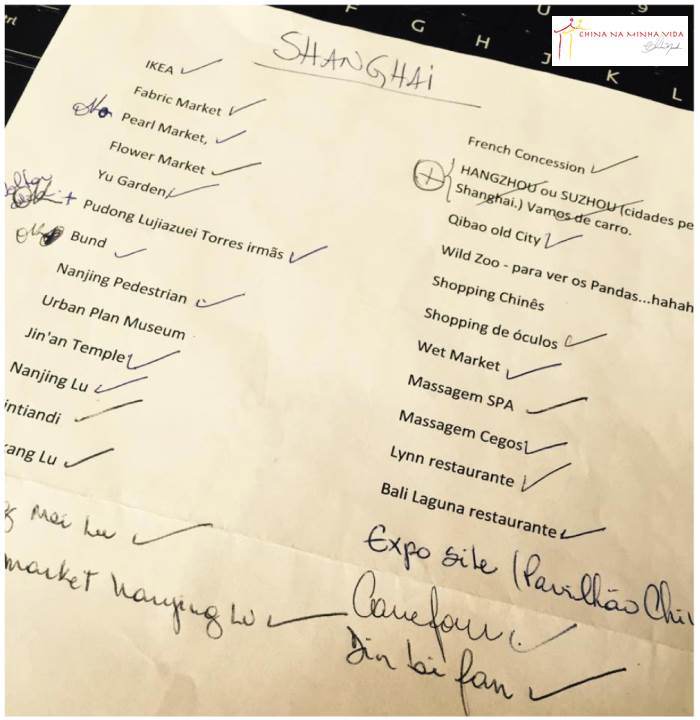 CHINA NA MINHA VIDA
F G H J K L U 9
SHANGHAI
IKEA
Fabric Market
Pearl Market,
Flower Market
Yu Garden
+ Pudong Lujiazuei Torres irmãs
Bund
Nanjing Pedestrian
Urban Plan Museum
Jin'an Temple
Nanjing Lu
intiandi
kang Lu
Mei Lu
market Nanjing Lu
French Concession
+ HANGZHOU ou SUZHOU (cidades pe
Shanghai.) Vamos de carro.
Qibao old City
Wild Zoo - para ver os Pandas...hahah
Shopping Chinês
Shopping de óculos
Wet Market
Massagem SPA
Massagem Cegos
Lynn restaurante
Bali Laguna restaurante
Expo site (Pavilhão Chi
Carrefour
Din tai fan